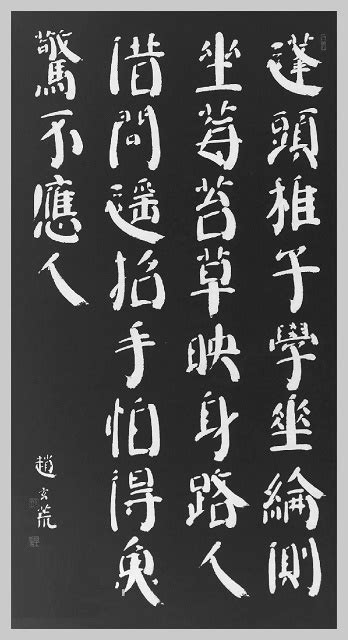 蓬頭稚子學垂綸側
坐莓苔草映身路人
借問遥招手怕得魚
驚不應人
趙玄荒